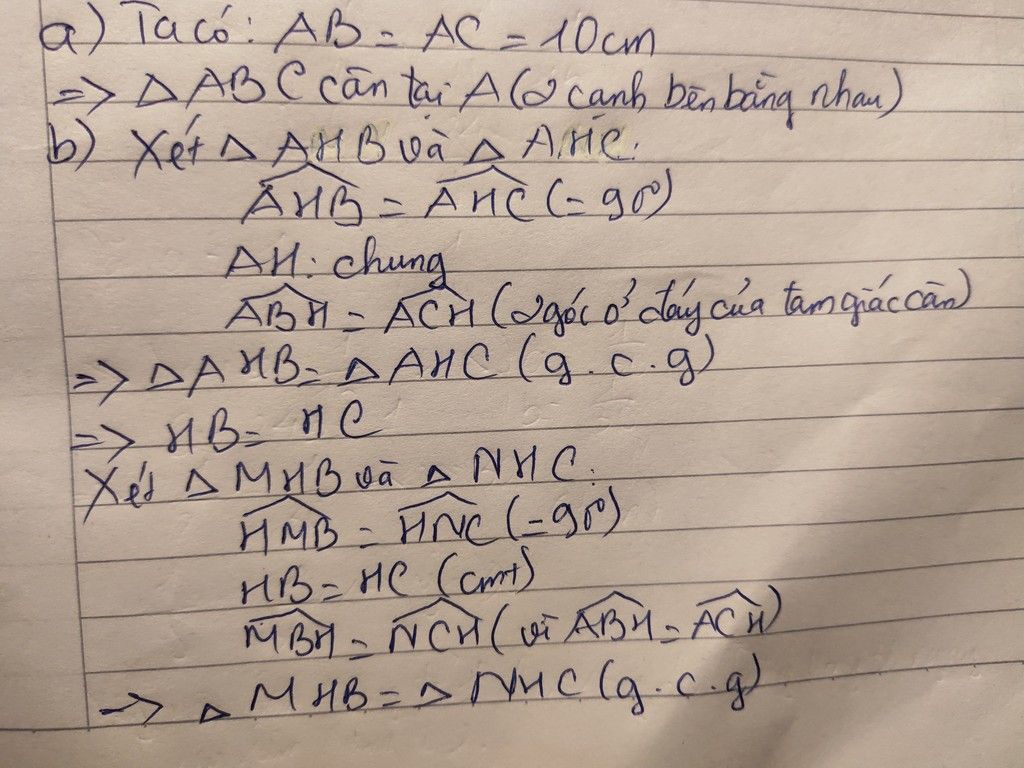 a) Ta có: AB = AC = 10cm
=> △ ABC cân tại A (2 cạnh bên bằng nhau)
b) Xét △ AHB và △ AHC.
$\widehat{AHB}$ = $\widehat{AHC}$ (= 90°)
AH: chung
$\widehat{ABH}$ = $\widehat{ACH}$ (2 góc ở đáy của tam giác cân)
=> △ AHB = △ AHC (g.c.g)
=> HB = HC
Xét △ MHB và △ NHC.
$\widehat{HMB}$ = $\widehat{HNC}$ (= 90°)
HB = HC (cmt)
$\widehat{MBH}$ = $\widehat{NCH}$ (vì $\widehat{ABH}$ = $\widehat{ACH}$)
=> △ MHB = △ NHC (g.c.g)